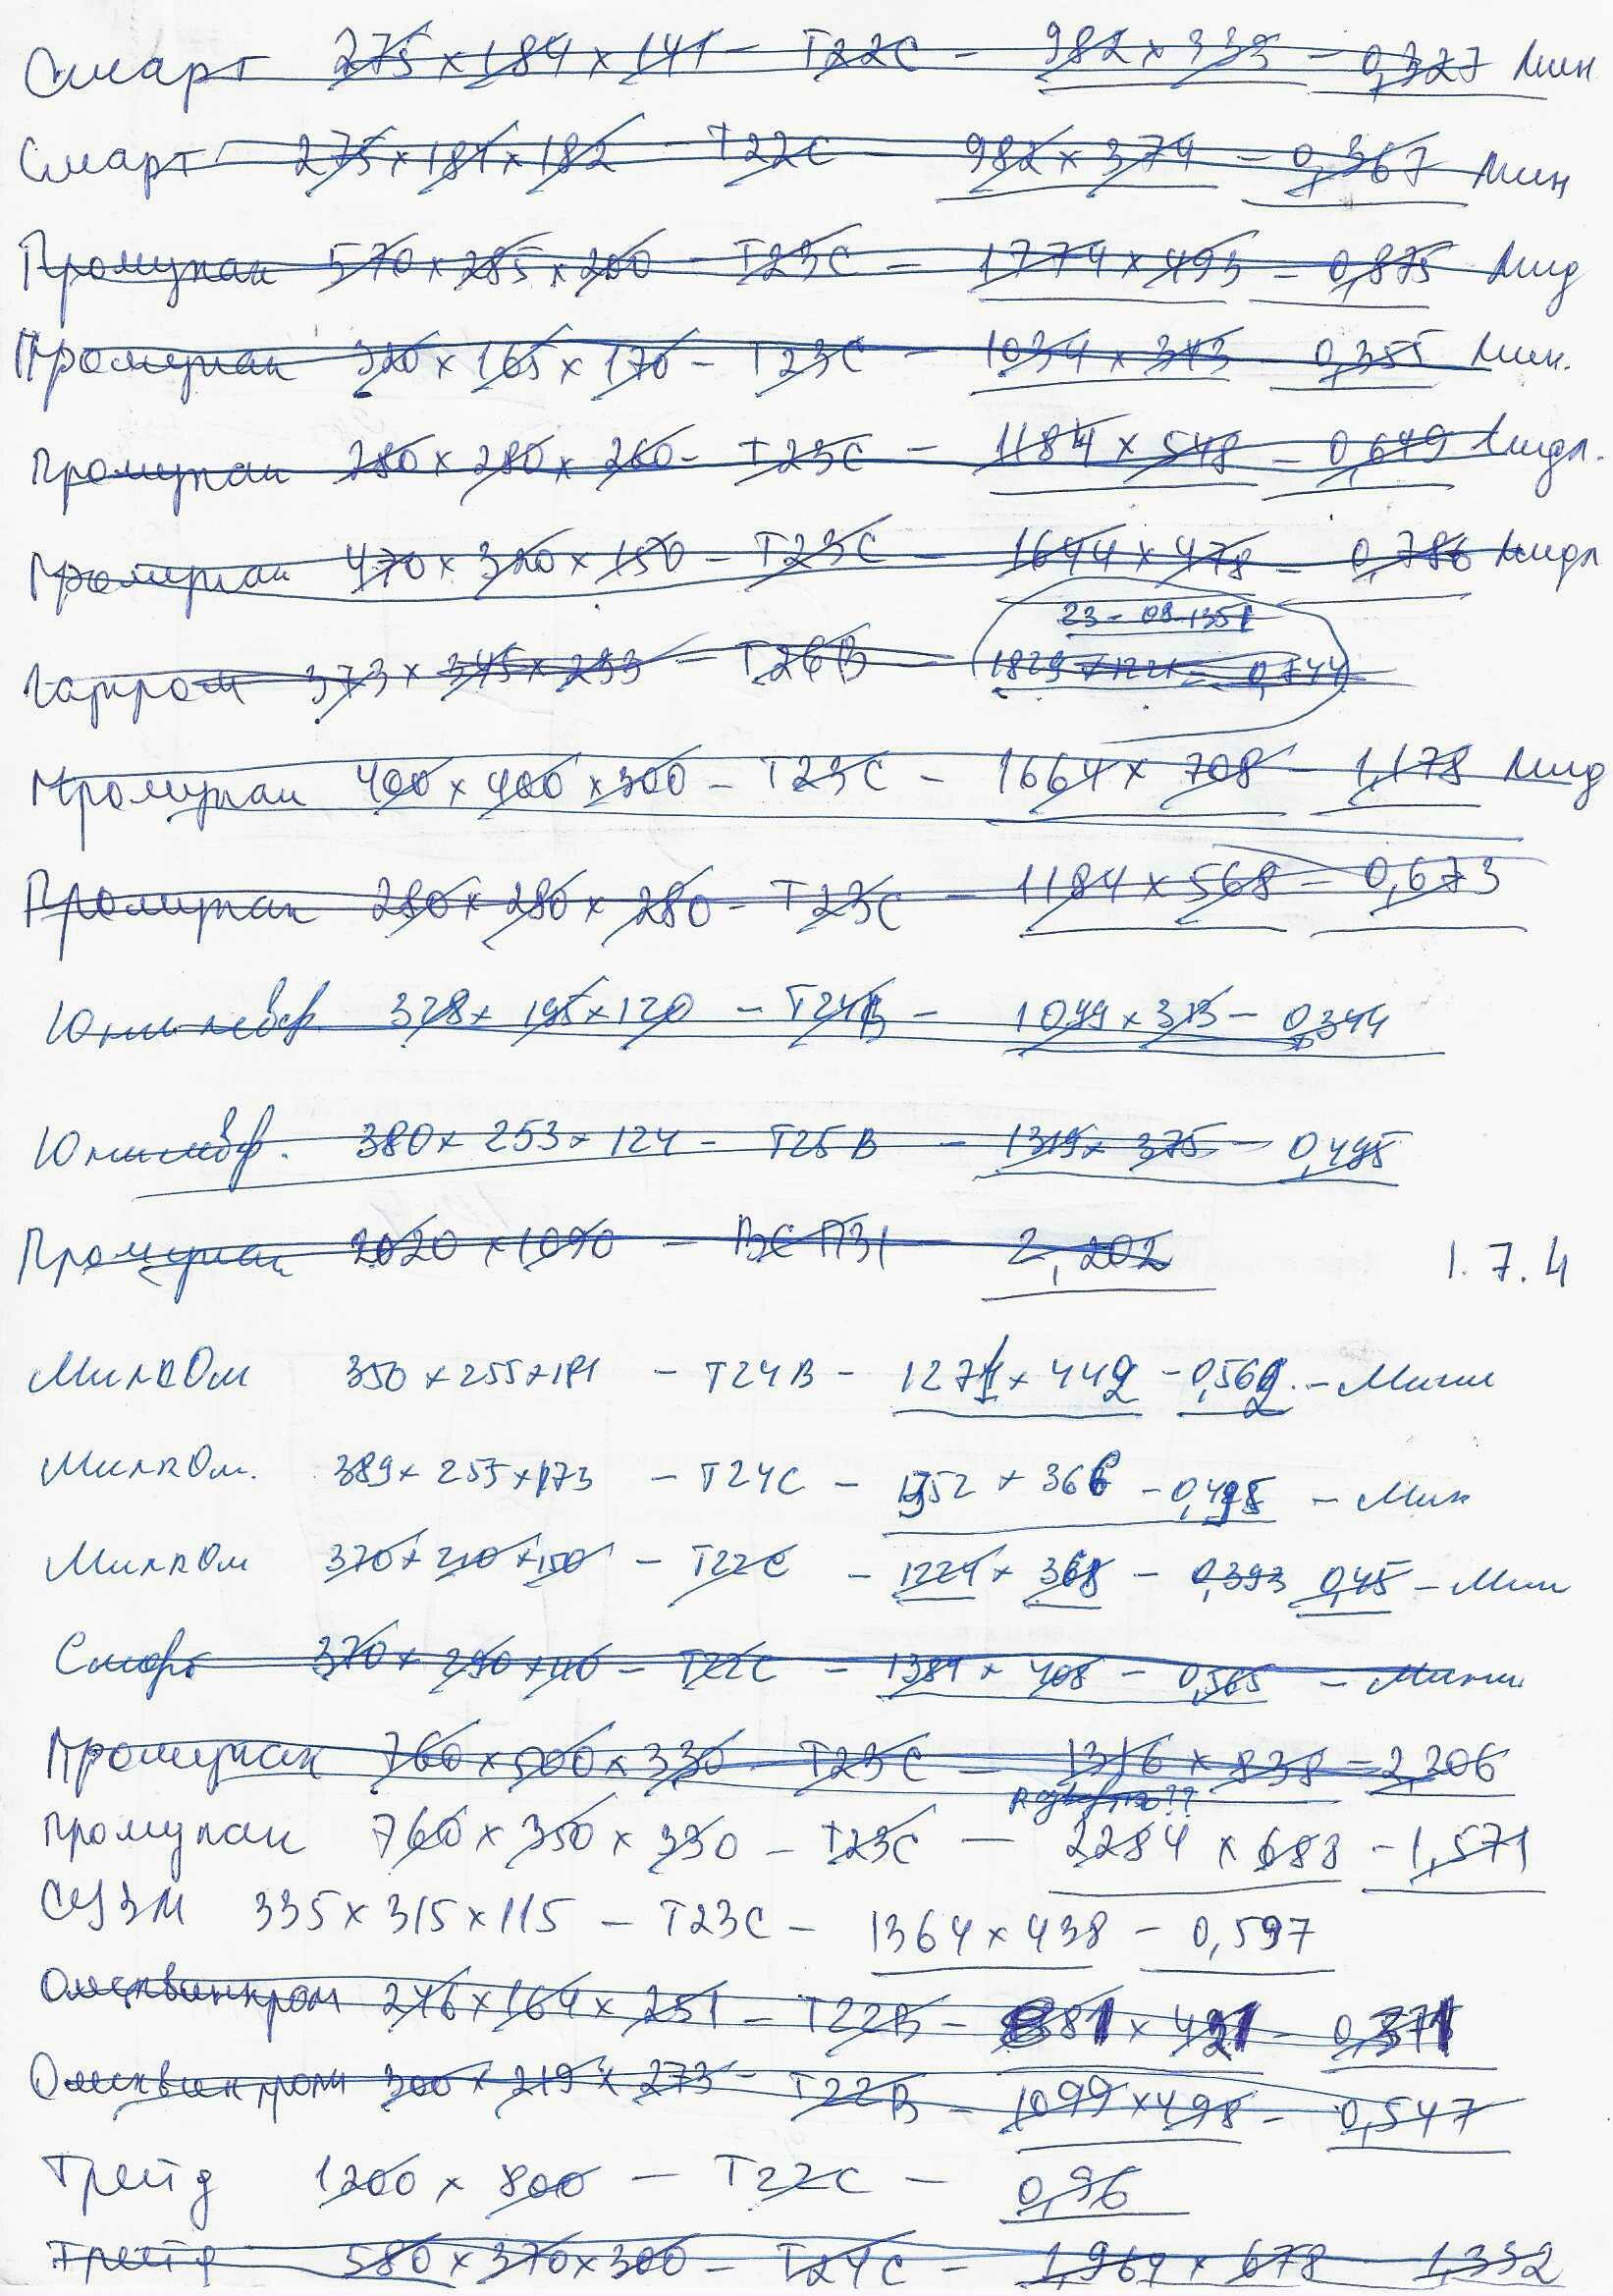 Смарт 275 x 184 x 141 - Т22С - 982 x 333 - 0,327 Мин
Смарт 275 x 184 x 182 - Т22С - 982 x 374 - 0,367 Мин
Промупак 570 x 285 x 200 - Т23С - 1774 x 493 - 0,875 Мид
Промупак 320 x 165 x 170 - Т23С - 1034 x 343 - 0,355 Мин.
Промупак 280 x 280 x 260 - Т23С - 1184 x 548 - 0,649 Мидл.
Промупак 470 x 320 x 150 - Т23С - 1644 x 478 - 0,786 Мидл
373 x 345 x 293 - Т26В -
Промупак 400 x 400 x 300 - Т23С - 1664 x 708 - 1,178 Мид
Промупак 280 x 280 x 280 - Т23С - 1184 x 568 - 0,673
Юнилевер 328 x 195 x 120 - Т24В - 1099 x 313 - 0,344
Юнилевер. 380 x 253 x 124 - Т25В - 1319 x 375 - 0,495
Промупак 2020 x 1090 - 2,202 1.7.4
МилкОм 350 x 255 x 181 - Т24В - 1271 x 442 - 0,562. - Мини
МилкОм. 389 x 255 x 173 - Т24С - 1352 x 366 - 0,495 - Мин
МилкОм 370 x 210 x 150 - Т22С - 1224 x 368 - 0,393 0,45 - Мин
Смарт 370 x 290 x 110 - Т22С - 1384 x 408 - 0,565 - Мини
Промупак 760 x 500 x 330 - Т23С - 1316 x 838 = 2,206
Промупак 760 x 350 x 330 - Т23С - 2284 x 688 - 1,571
СЦЗМ 335 x 315 x 115 - Т23С - 1364 x 438 - 0,597
Омсквинпром 246 x 164 x 251 - Т22В - 881 x 421 - 0,371
Омсквинпром 300 x 219 x 273 - Т22В - 1099 x 498 - 0,547
Трейд 1200 x 800 - Т22С - 0,96
Трейд 580 x 370 x 300 - Т24С - 1,964 x 678 - 1,332